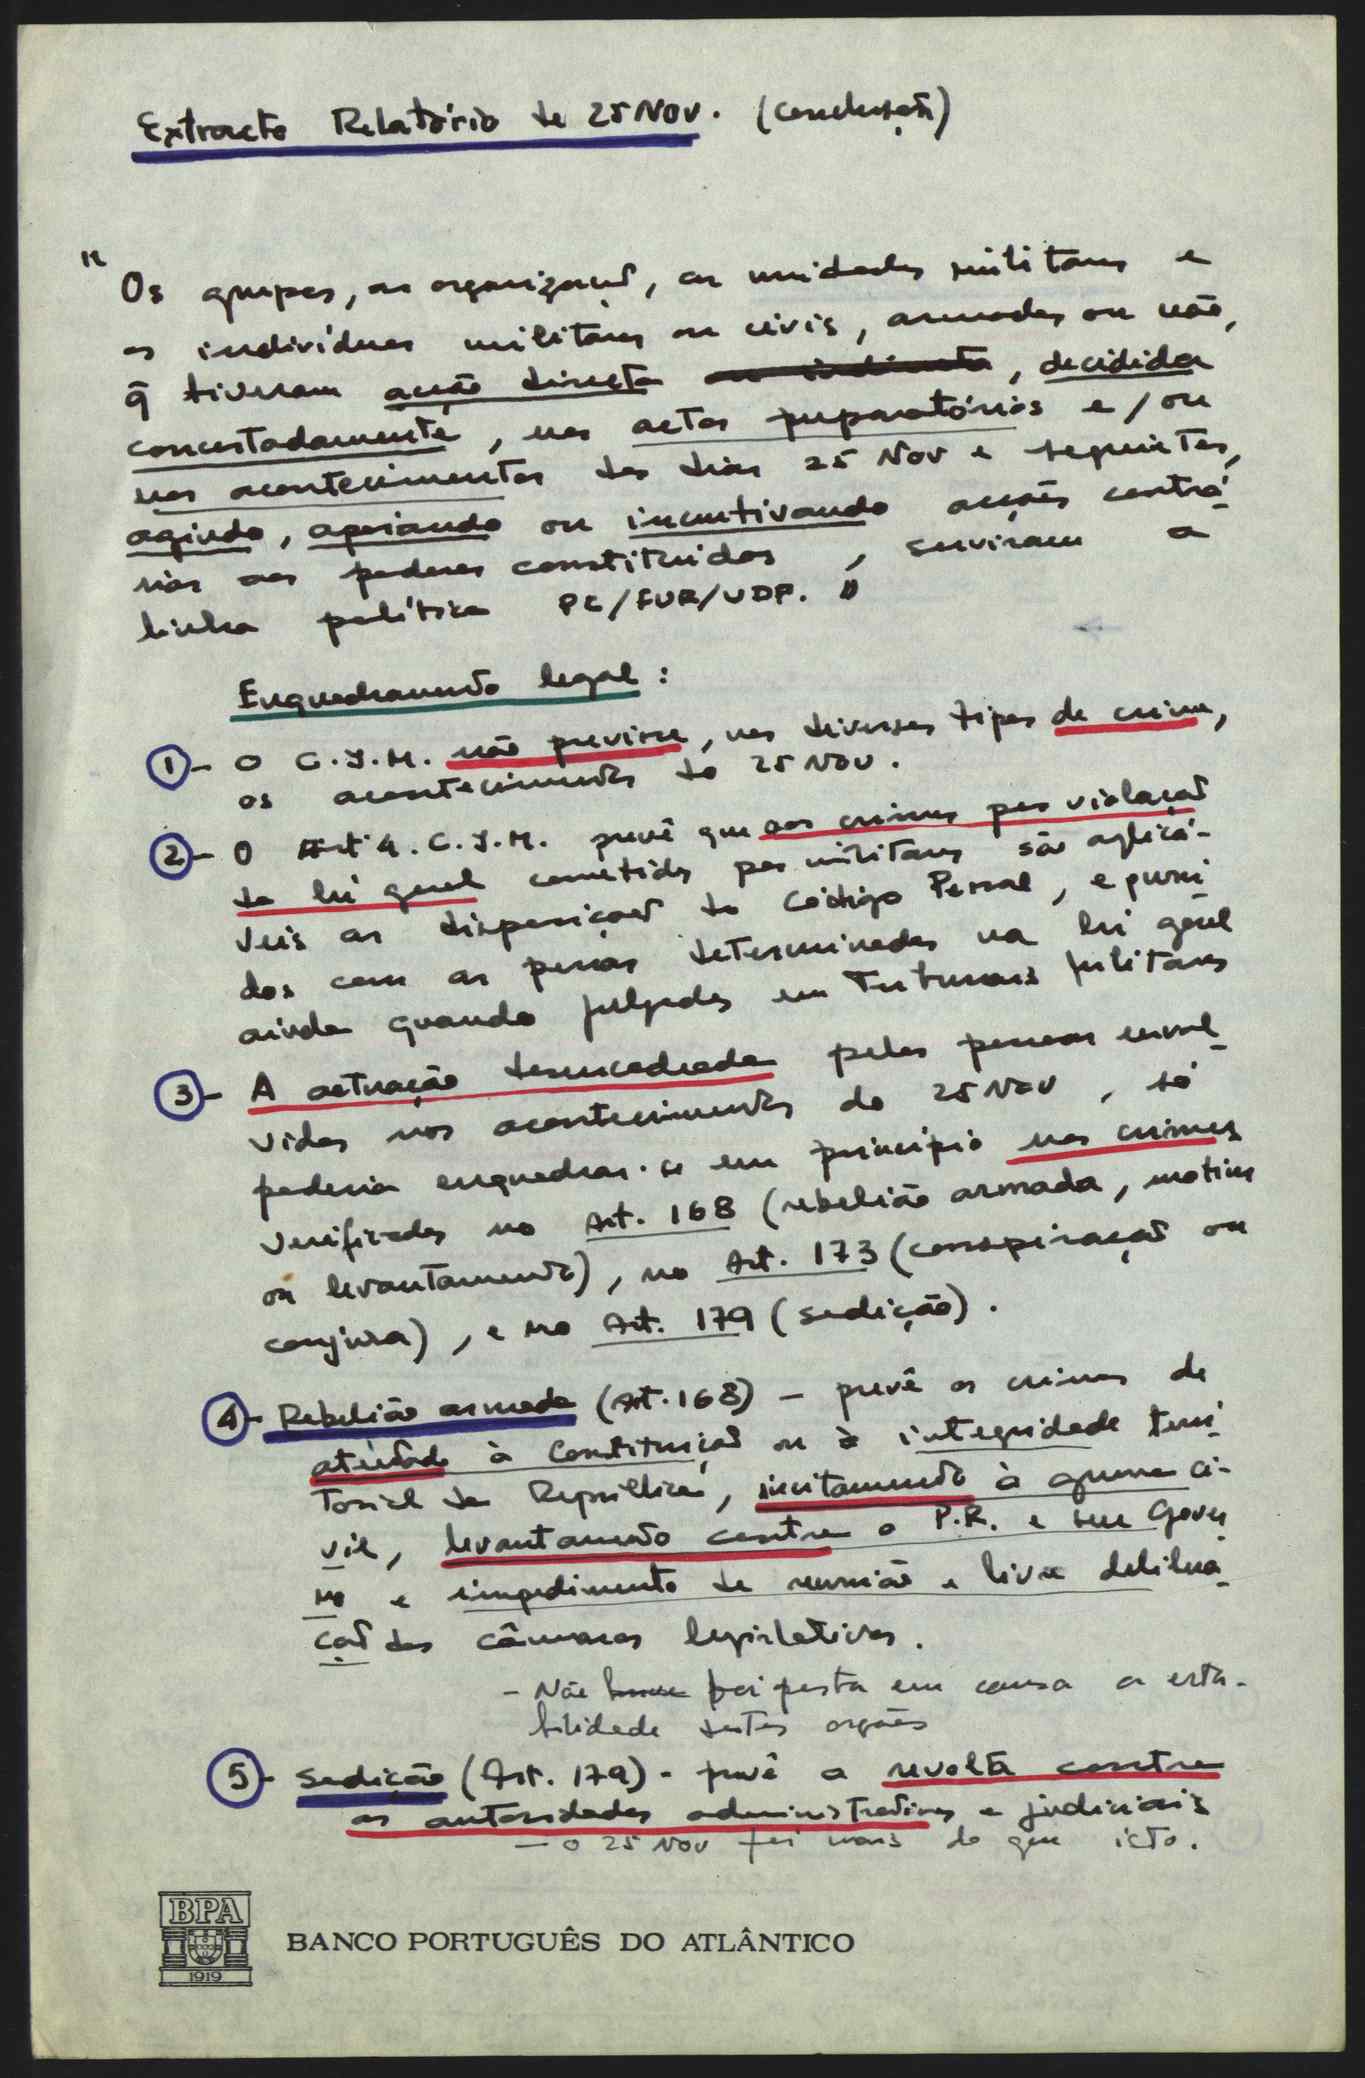 Extracto Relatório de 25 Nov. (conclusão)
" Os grupos, as organizações, as unidades militares e
os indivíduos militares ou civis, armados ou não,
q̃ tiveram acção directa ou indirecta, decidida
concertadamente, nos actos preparatórios e/ou
nos acontecimentos dos dias 25 Nov e seguintes,
agindo, apoiando ou incentivando acções contrá-
rias aos poderes constituidos, serviram a
linha política PC/FUR/UDP. "
Enquadramento legal:
1 - O C.J.M. não previne, nos diversos tipos de crime,
os acontecimentos do 25 Nov.
2 - O Art 4. C.J.M. prevê que aos crimes por violação
da lei geral cometidos por militares são aplicá-
veis as disposições do Código Penal, e puni-
dos com as penas determinadas na lei geral
ainda quando julgados em Tribunais Militares
3 - A actuação desencadeada pelas pessoas envol-
vidas nos acontecimentos do 25 Nov, só
poderia enquadrar-se em princípio nos crimes
verificados no Art. 168 (rebelião armada, motim
ou levantamento), no Art. 173 (conspiração ou
conjura), e no Art. 179 (sedição).
4 - Rebelião armada (Art. 168) - prevê os crimes de
atentado à Constituição ou à integridade terri-
torial da República, incitamento à guerra ci-
vil, levantamento contra o P.R. e seu Gover-
no e impedimento de reunião e livre delibera-
ção das câmaras legislativas.
- Não houve foi posta em causa a esta-
bilidade destes orgãos
5 - Sedição (Art. 179) - prevê a revolta contra
as autoridades administrativas e judiciais
- o 25 Nov foi mais do que isto.
BPA
1919
BANCO PORTUGUÊS DO ATLÂNTICO